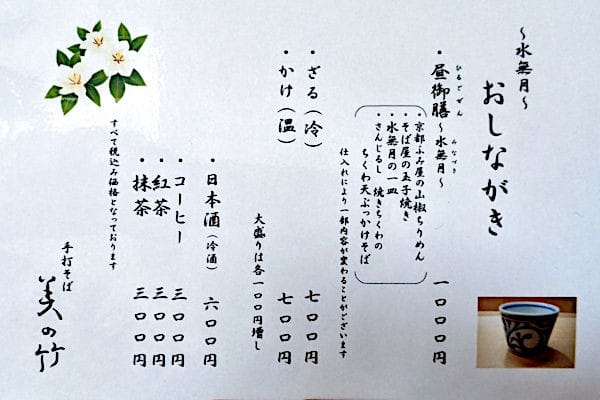 〜水無月〜
おしながき
・昼御膳〜水無月〜 一〇〇〇円
ひるごぜん
みなづき
・京都ふみ屋の山椒ちりめん
・そば屋の玉子焼き
・水無月の一皿
・さんじるし 焼きちくわの
ちくわ天ぶっかけそば
仕入れにより一部内容が変わることがございます
・ざる(冷) 七〇〇円
・かけ(温) 七〇〇円
大盛りは各一〇〇円増し
・日本酒(冷酒) 六〇〇円
・コーヒー 三〇〇円
・紅茶 三〇〇円
・抹茶 三〇〇円
すべて税込み価格となっております
手打そば
美の竹